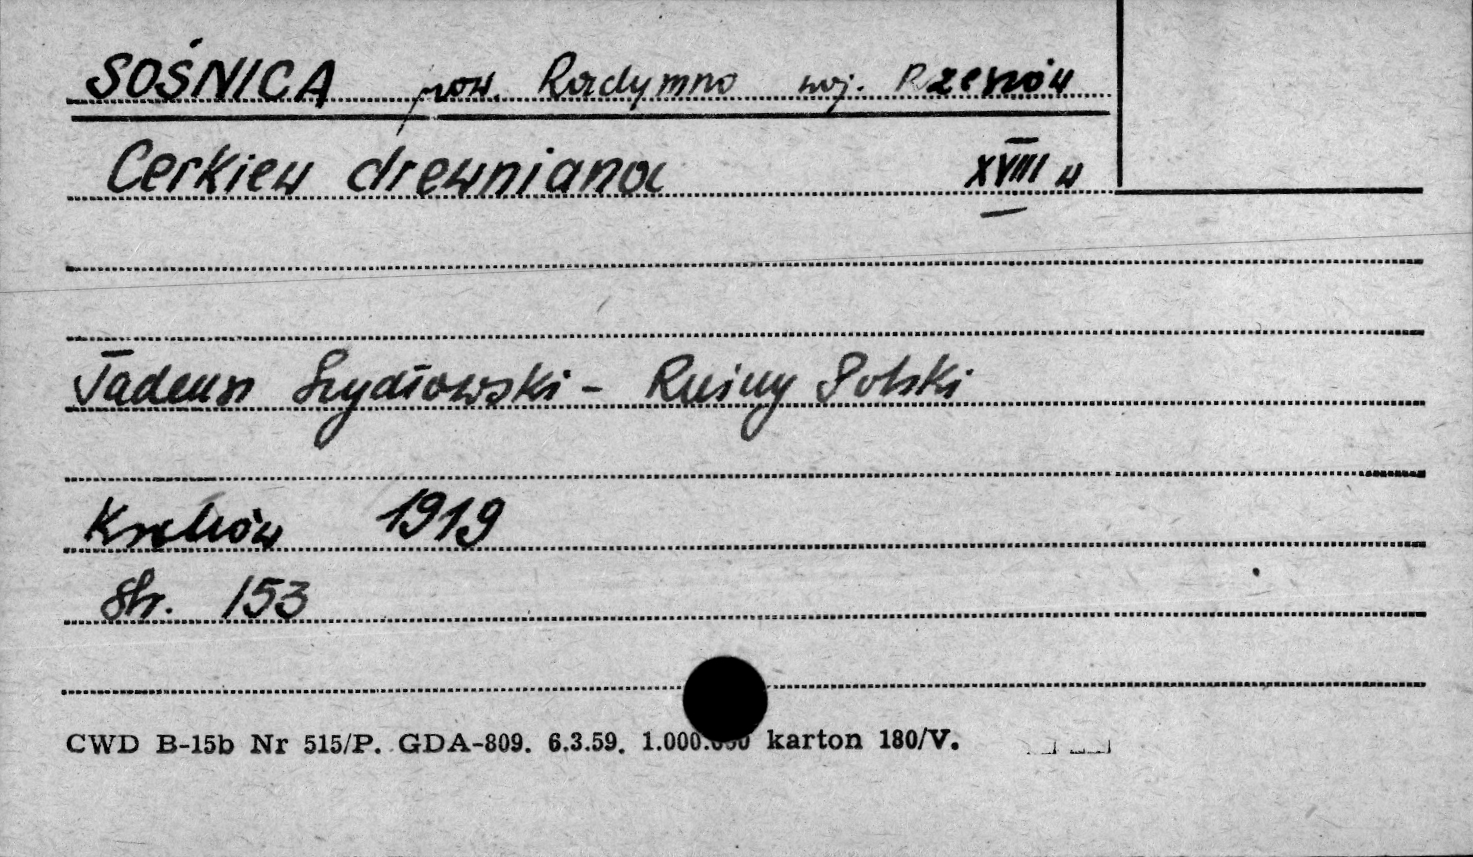 SOŚNICA pow. Radymno woj. Rzeszów
Cerkiew drewniana XVIII w
Tadeusz Szydłowski - Ruiny Polski
Kraków 1919
Str. 153
CWD B-15b Nr 515/P. GDA-809. 6.3.59. 1.000.000 karton 180/V.